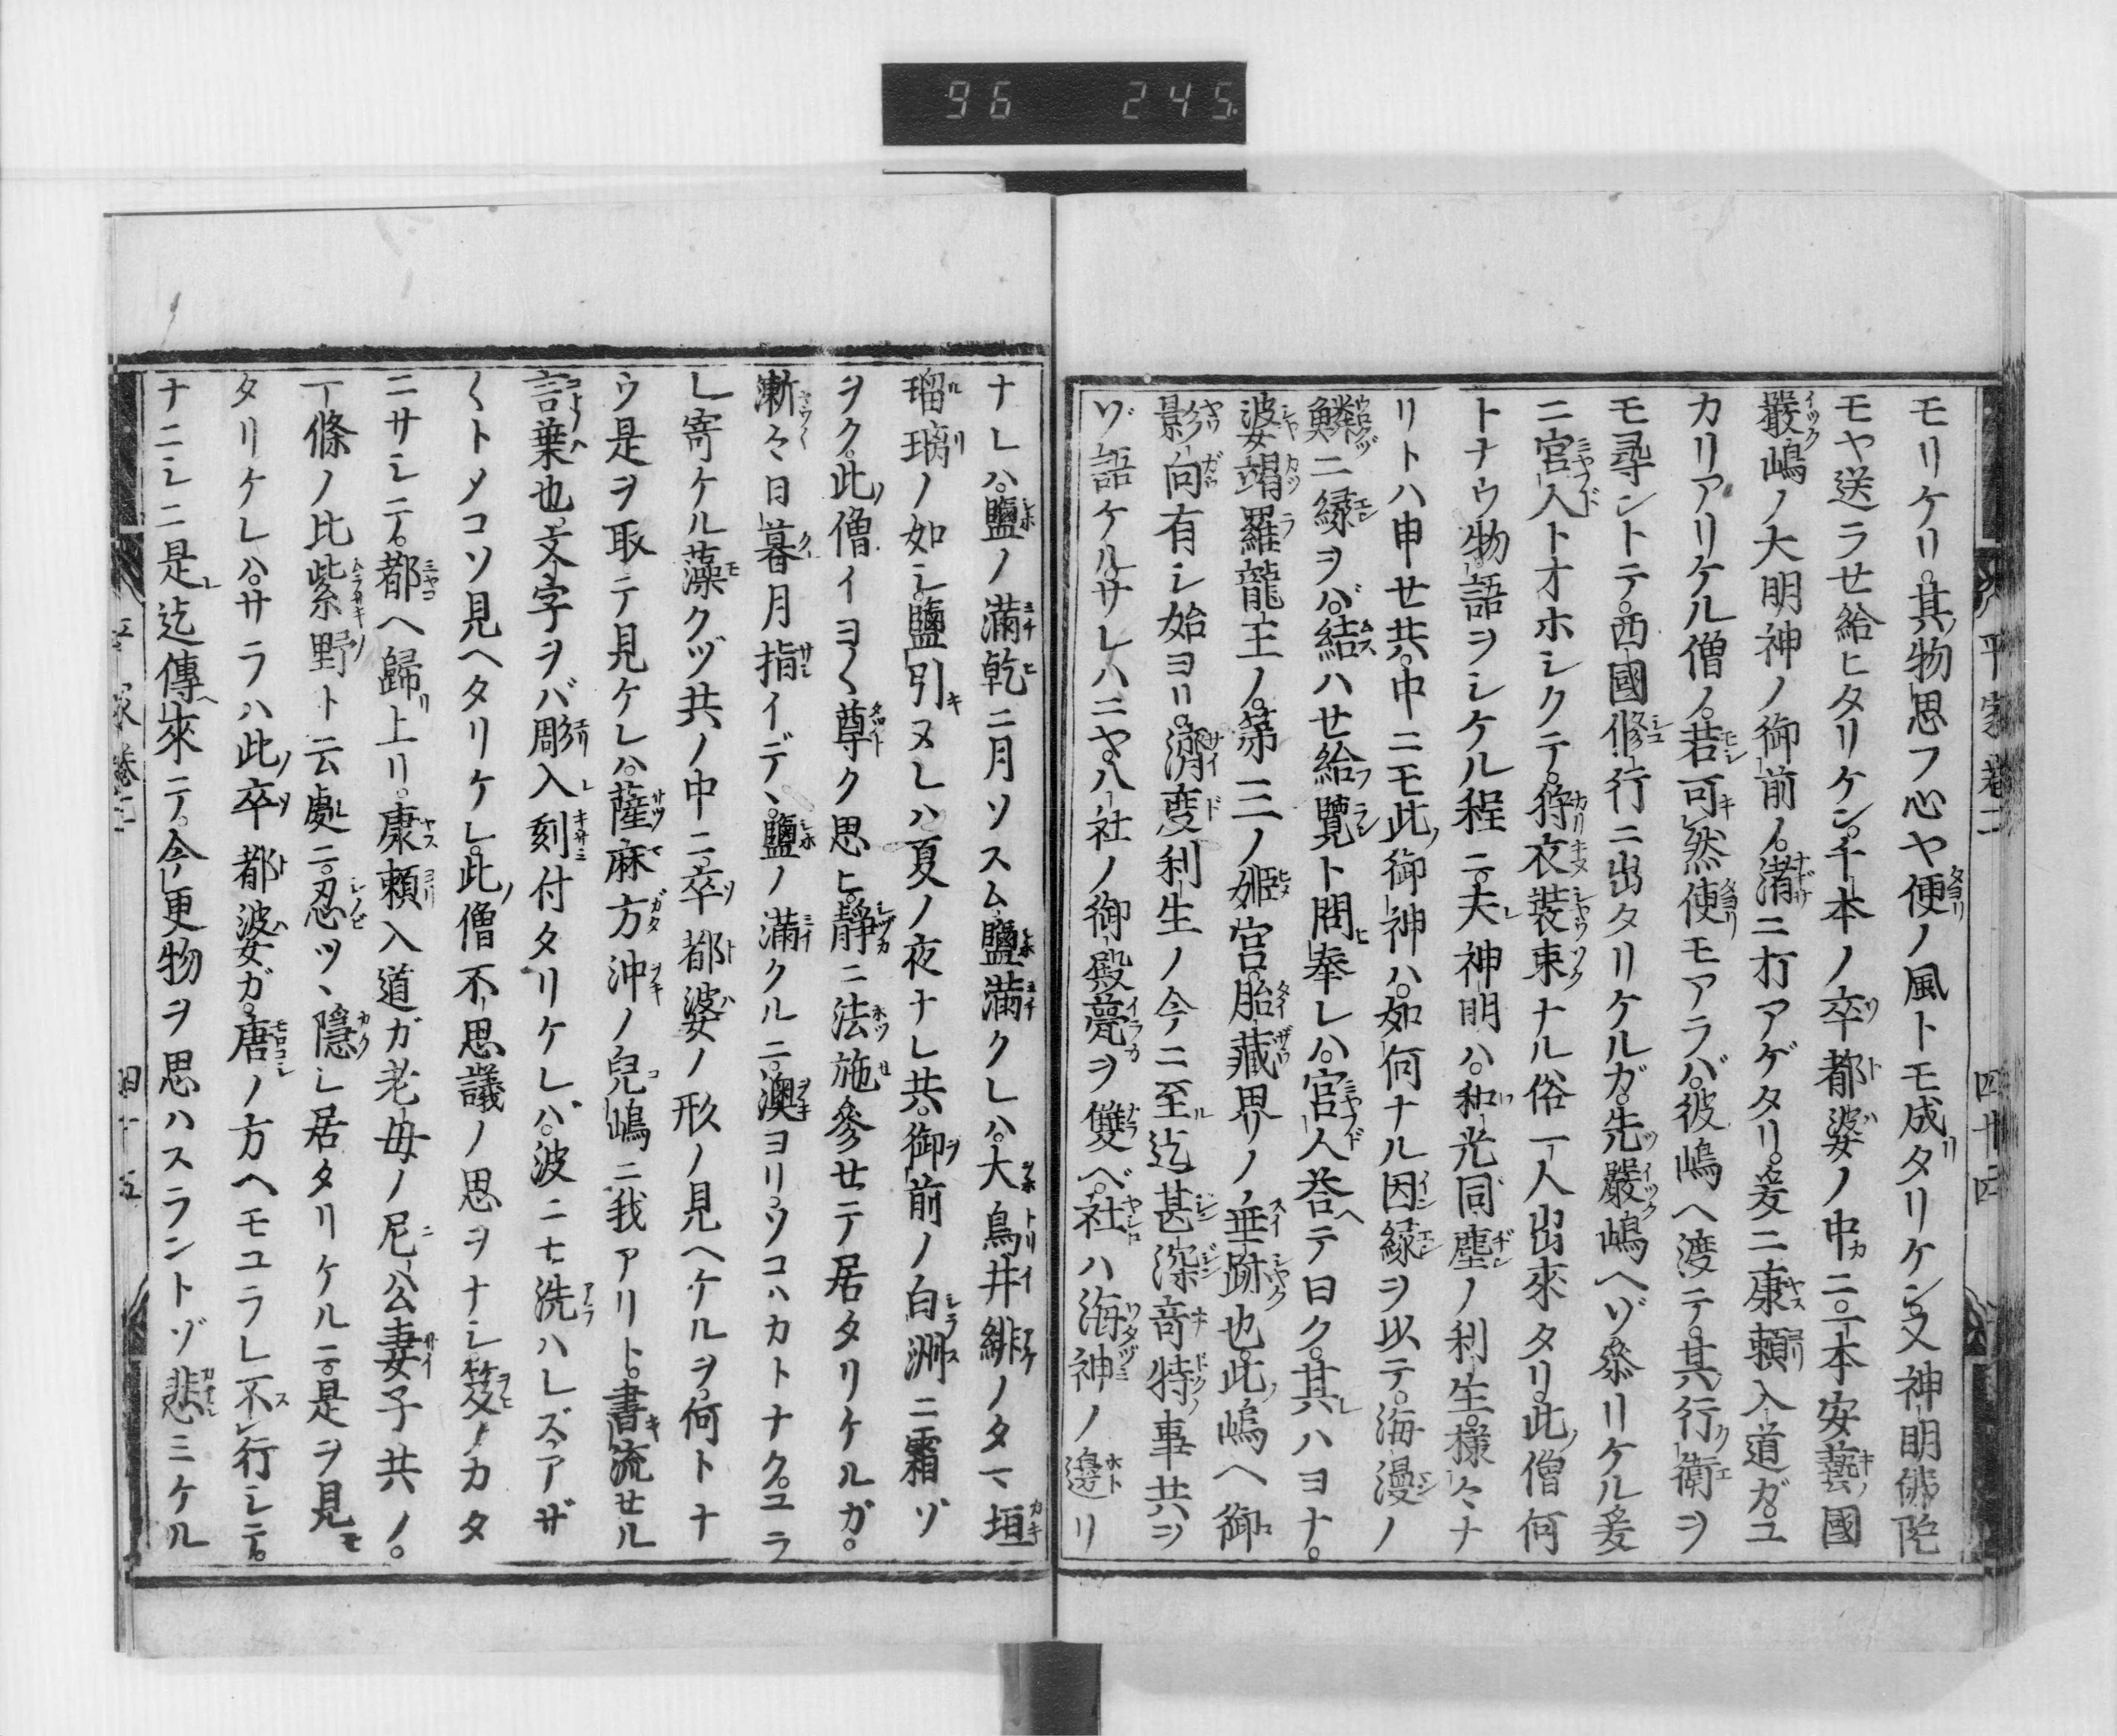 96 245
平家巻二 四十四
モリケリ。其物思フ心ヤ便ノ風トモ成タリケン。又神明佛陀
モヤ送ラせ給ヒタリケン。千本ノ卒都婆ノ中ニ。一本安藝國
嚴嶋ノ大明神ノ御前ノ。渚ニ打アゲタリ。爰ニ康頼入道ガ。ユ
カリアリケル僧ノ。若可然便モアラバ。彼嶋ヘ渡テ。其行衛ヲ
モ尋ントテ。西國修行ニ出タリケルガ。先嚴嶋ヘゾ參リケル爰
ニ宮人トオホシクテ。狩衣裝束ナル俗一人出來タリ。此僧何
トナウ物語ヲシケル程ニ。夫神明ハ。和光同塵ノ利生。様々ナ
リトハ申せ共。中ニモ此御神ハ。如何ナル因縁ヲ以テ。海漫ノ
鱗ニ縁ヲバ。結ハせ給覽ト問奉レハ。宮人荅テ曰ク。其ハヨナ。
婆竭羅龍王ノ。第三ノ姫宮。胎藏界ノ垂跡也。此嶋ヘ御
影向有シ始ヨリ。濟度利生ノ今ニ至迄。甚深奇特ノ事共ヲ
ゾ語ケル。サレハニヤ。八社ノ御殿甍ヲ雙ベ。社ハ海神ノ邊リ
ナレハ。鹽ノ滿乾ニ月ソスム。鹽滿クレハ。大鳥井緋ノタマ垣
瑠璃ノ如シ。鹽引ヌレハ。夏ノ夜ナレ共。御前ノ白洲ニ霜ゾ
ヲク。此僧イヨ〱尊ク思ヒ。靜ニ法施參せテ居タリケルガ。
漸々日暮月指イデヽ。鹽ノ滿クルニ。澳ヨリ。ソコハカトナク。ユラ
レ寄ケル藻クヅ共ノ中ニ。卒都婆ノ形ノ見ヘケルヲ。何トナ
ウ是ヲ取テ見ケレハ。薩麻方沖ノ兒嶋ニ我アリト。書流せル
言葉也。文字ヲバ彫入刻付タリケレハ。波ニモ洗ハレズ。アザ
〱トメコソ見ヘタリケレ。此僧不思議ノ思ヲナシ。笈ノカタ
ニサシテ。都ヘ歸上リ。康頼入道ガ老母ノ尼公妻子共ノ。
一條ノ比紫野ト云處ニ。忍ツヽ隱レ居タリケルニ。是ヲ見せ
タリケレハ。サラハ此卒都婆ガ。唐ノ方ヘモユラレ不行シテ。
ナニシニ是迄傳來テ。今更物ヲ思ハスラントゾ悲ミケル
平家巻二 四十五